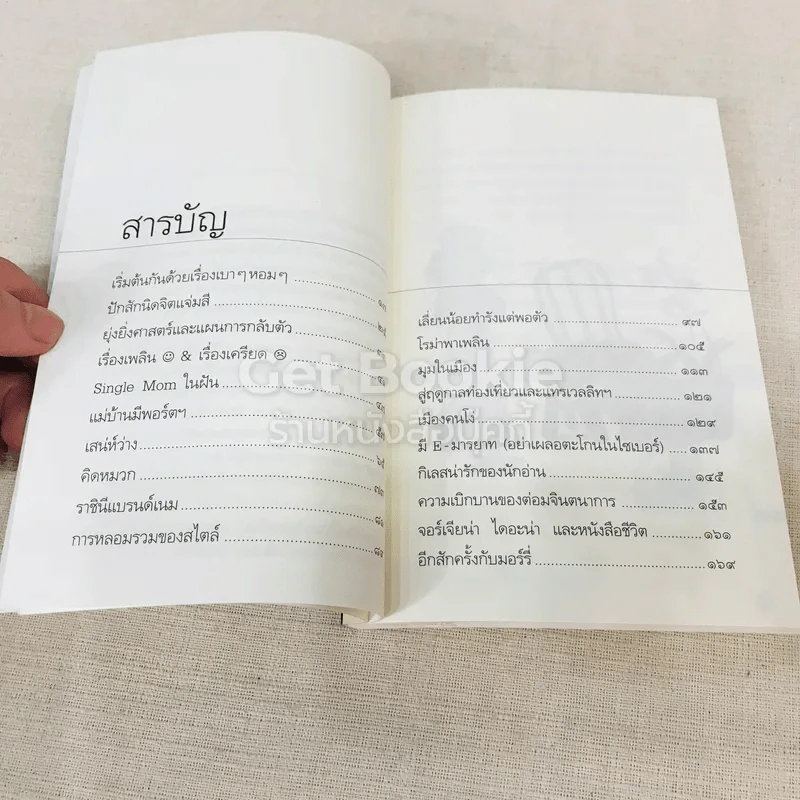 สารบัญ
เริ่มต้นกันด้วยเรื่องเบา ๆ หอม ๆ
ปักสักนิดจิตแจ่มสี
ยุ่งยิ่งศาสตร์และแผนการกลับตัว
เรื่องเพลิน ☺ & เรื่องเครียด ☹
Single Mom ในฝัน
แม่บ้านมีพอร์ตฯ
เสน่ห์ว่าง
คิดหมวก
ราชินีแบรนด์เนม
การหลอมรวมของสไตล์
เลี่ยนน้อยทำรังแต่พอตัว ๙๗
โรม่าพาเพลิน ๑๐๕
มุมในเมือง ๑๑๓
สู่ฤดูกาลท่องเที่ยวและแทรเวลลิทฯ ๑๒๑
เมืองคนโง่ ๑๒๙
มี E-มารยาท (อย่าเผลอตะโกนในไซเบอร์) ๑๓๗
กิเลสน่ารักของนักอ่าน ๑๔๕
ความเบิกบานของต่อมจินตนาการ ๑๕๓
จอร์เจียน่า ไดอะน่า และหนังสือชีวิต ๑๖๑
อีกสักครั้งกับมอร์รี่ ๑๖๙
Get Bookie